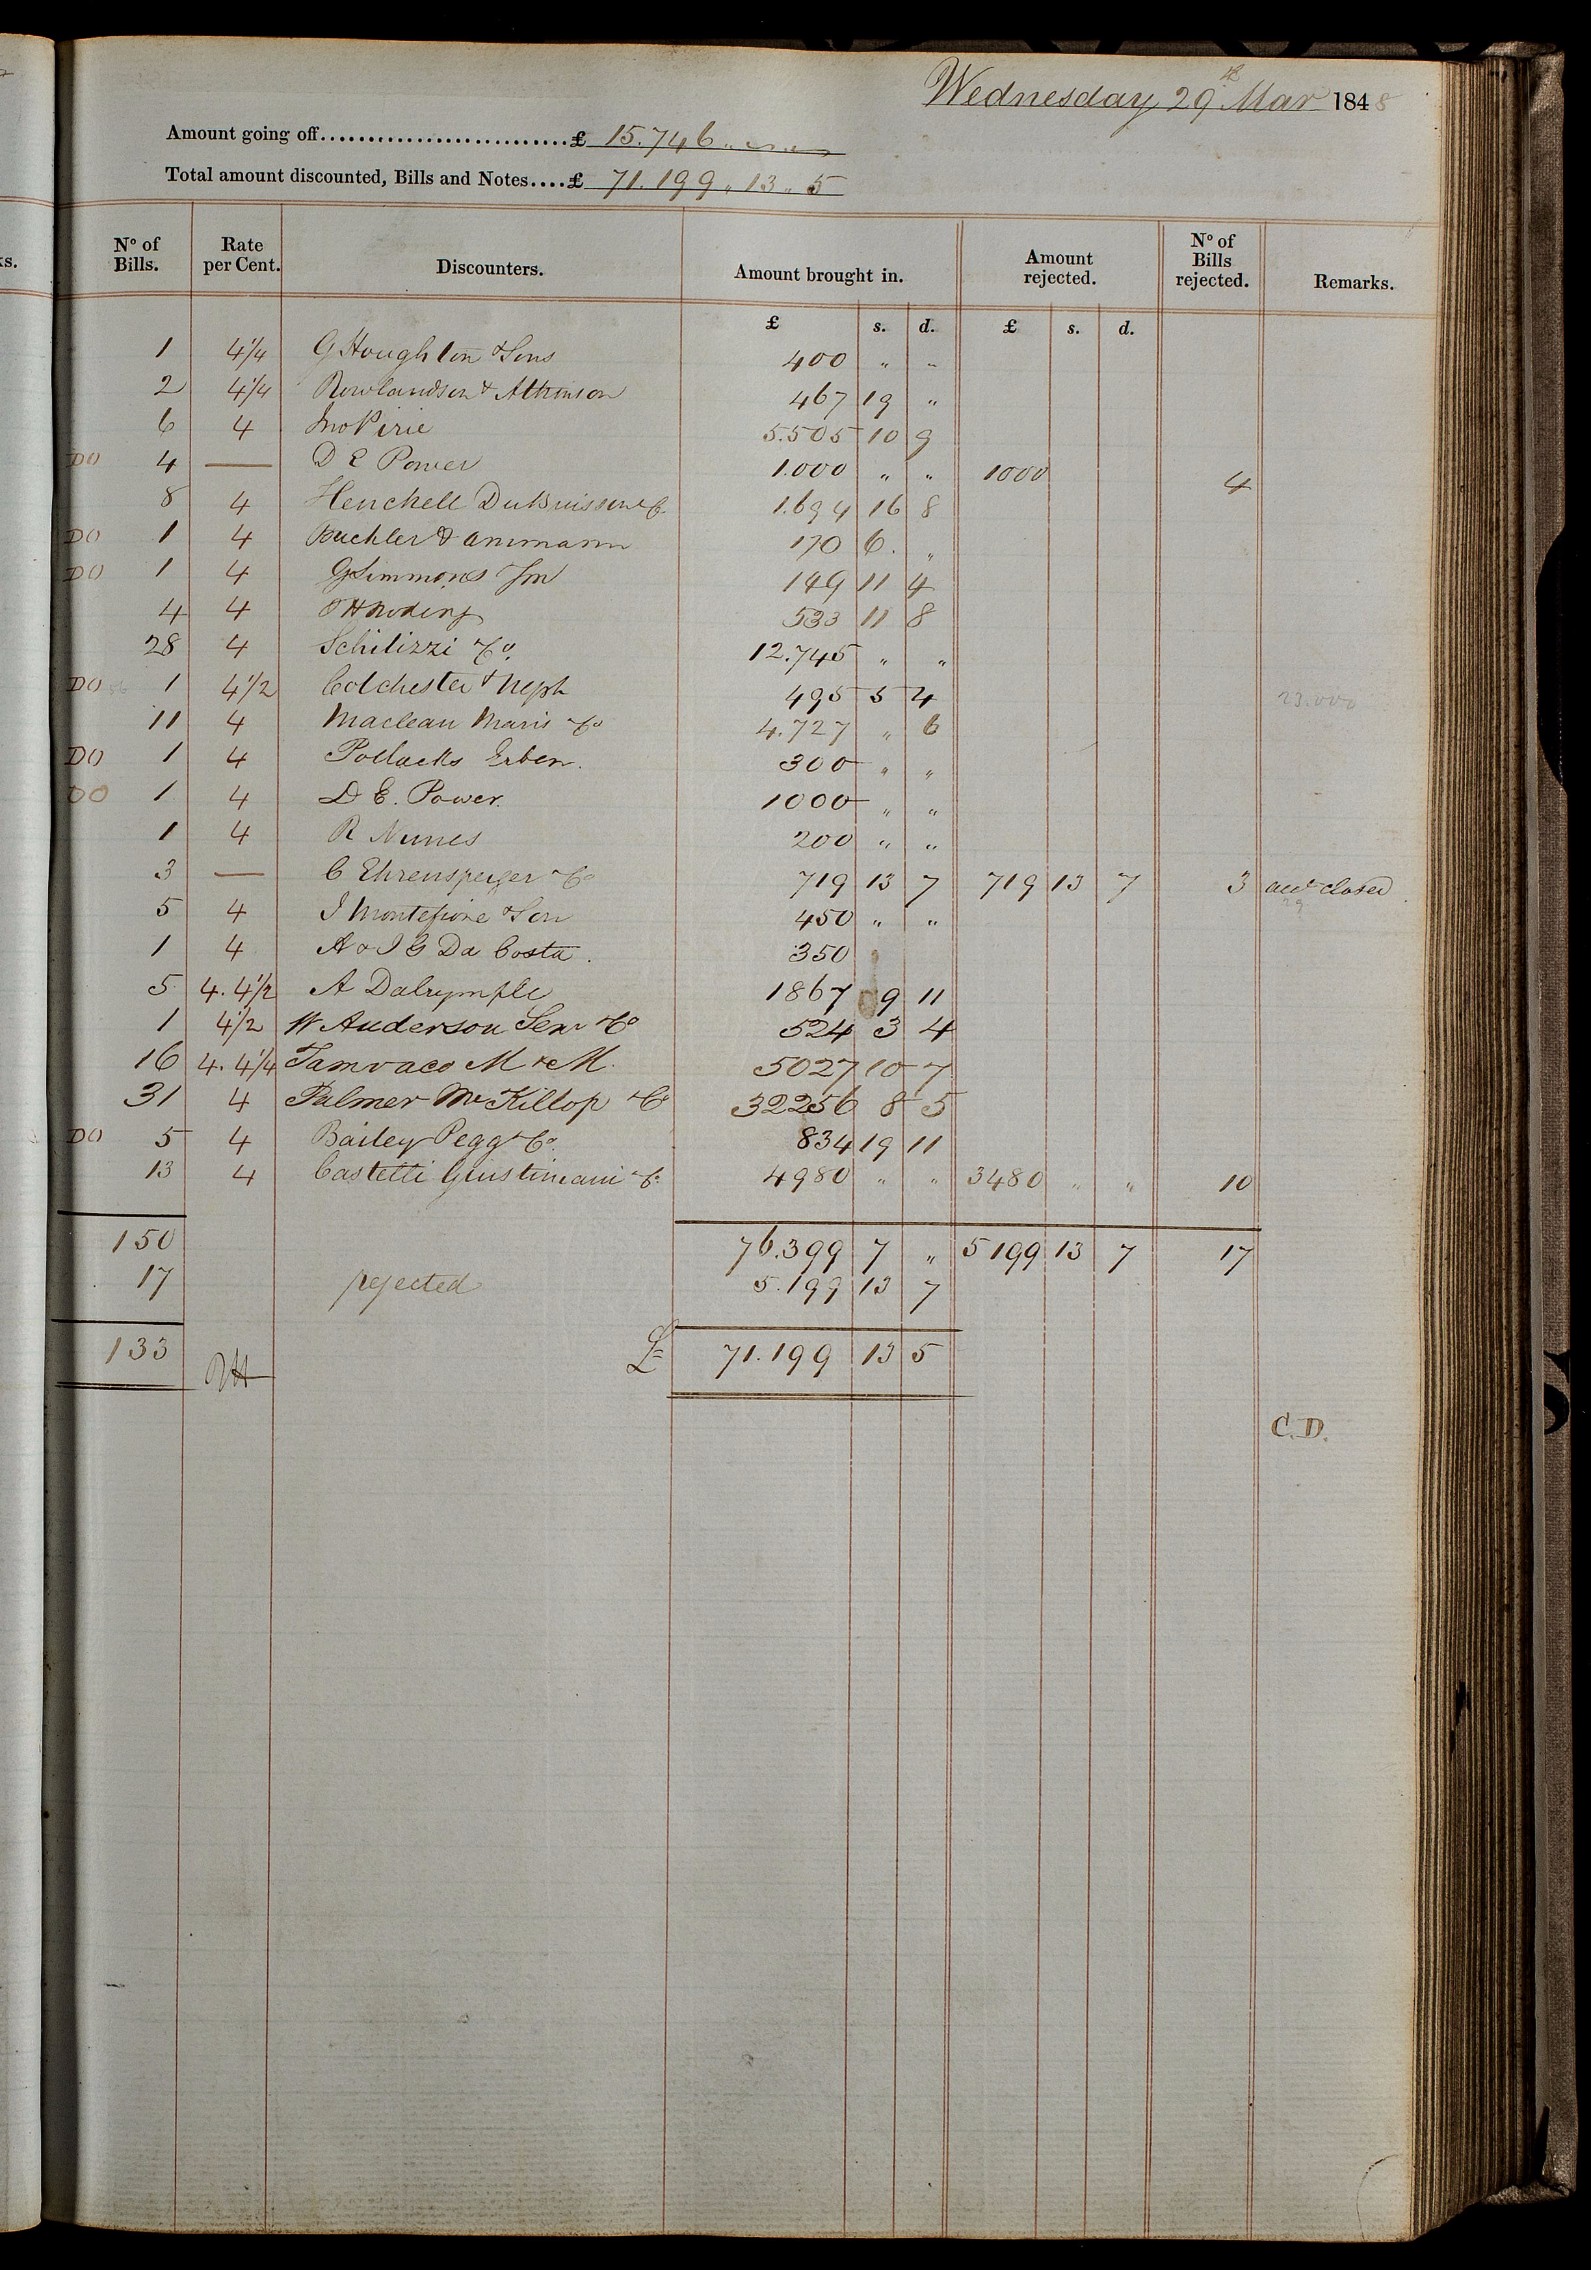 Wednesday 29th Mar 1848
Amount going off...........................£ 15.746 „ „ „
Total amount discounted, Bills and Notes....£ 71.199 „ 13 „ 5
ks.
No of Bills. Rate per Cent. Discounters. Amount brought in. Amount rejected. No of Bills rejected. Remarks.
£ s. d. £ s. d.
1 4 1/4 G Houghton & Sons 400 „ „
2 4 1/4 Rowlandson & Atkinson 467 19 „
6 4 Jno Pirie 5.505 10 9
DO 4 — D E Power 1.000 „ „ 1000 4
8 4 Henckell DuBuisson & Co 1.694 16 8
DO 1 4 Buchler & Ammann 170 6 . „
DO 1 4 G Simmons Jnr 149 11 4
4 4 533 11 8
28 4 Schilizzi & Co 12.745 „ „
DO 1 4 1/2 Colchester & Neph 495 5 4 23.000
11 4 Maclean Maris & Co 4.727 „ 6
DO 1 4 Pollacks Erben. 300 „ „
DO 1 4 D E. Power. 1000 „ „
1 4 R Nunes 200 „ „
3 — C Ehrensperger & Co 719 13 7 719 13 7 3 acct closed
29
5 4 J Montefiore & Son 450 „ „
1 4 A & J G Da Costa . 350
5 4. 4 1/2 A Dalrymple 1867 9 11
1 4 1/2 W Anderson Senr & Co 524 3 4
16 4. 4 1/4 Tamvaco M & M. 5027 10 7
31 4 Palmer McKillop & Co 32256 8 5
DO 5 4 Bailey Pegg & Co. 834 19 11
13 4 Castelli Giustiniani & Co 4980 „ „ 3480 „ „ 10
150 76.399 7 „ 5199 13 7 17
17 rejected 5.199 13 7
133 £ 71.199 13 5
C.D.